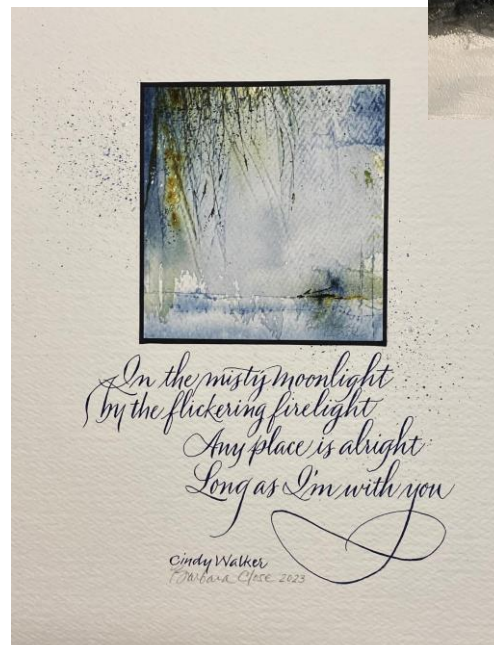 In the misty moonlight
by the flickering firelight
Any place is alright
Long as I'm with you
Cindy Walker
Barbara Close 2023